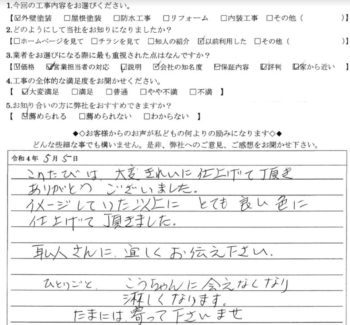 1.今回の工事内容をお選びください。
☑外壁塗装 □屋根塗装 □防水工事 □リフォーム □内装工事 □その他( )
2.どのようにして当社をお知りになりましたか?
□ホームページを見て □チラシを見て □知人の紹介 ☑以前利用した □その他( )
3.業者をお選びになる際に最も重視された点はなんですか?
☑価格 ☑営業担当者の対応 ☑説明 ☑会社の知名度 ☑保証内容 ☑評判 ☑家から近い
4.工事の全体的な満足度をお聞かせください。
☑大変満足 □満足 □普通 □やや不満 □不満
5.お知り合いの方に弊社をおすすめできますか?
☑薦められる □薦められない □わからない
◆◇お客様からのお声が私どもの何よりの励みになります◇◆
どんな些細な事でも構いません。是非、弊社へのご意見、ご感想をお聞かせ下さい。
令和4年 5月5日
このたびは、大変きれいに仕上げて頂き
ありがとう ございました。
イメージしていた以上に とても 良い 色に
仕上げて 頂きました。
職人さんに、宜しく お伝え下さい。
ひとりごと、 こうちゃんに 会えなくなり
淋しくなります。
たまには 寄って 下さいませ